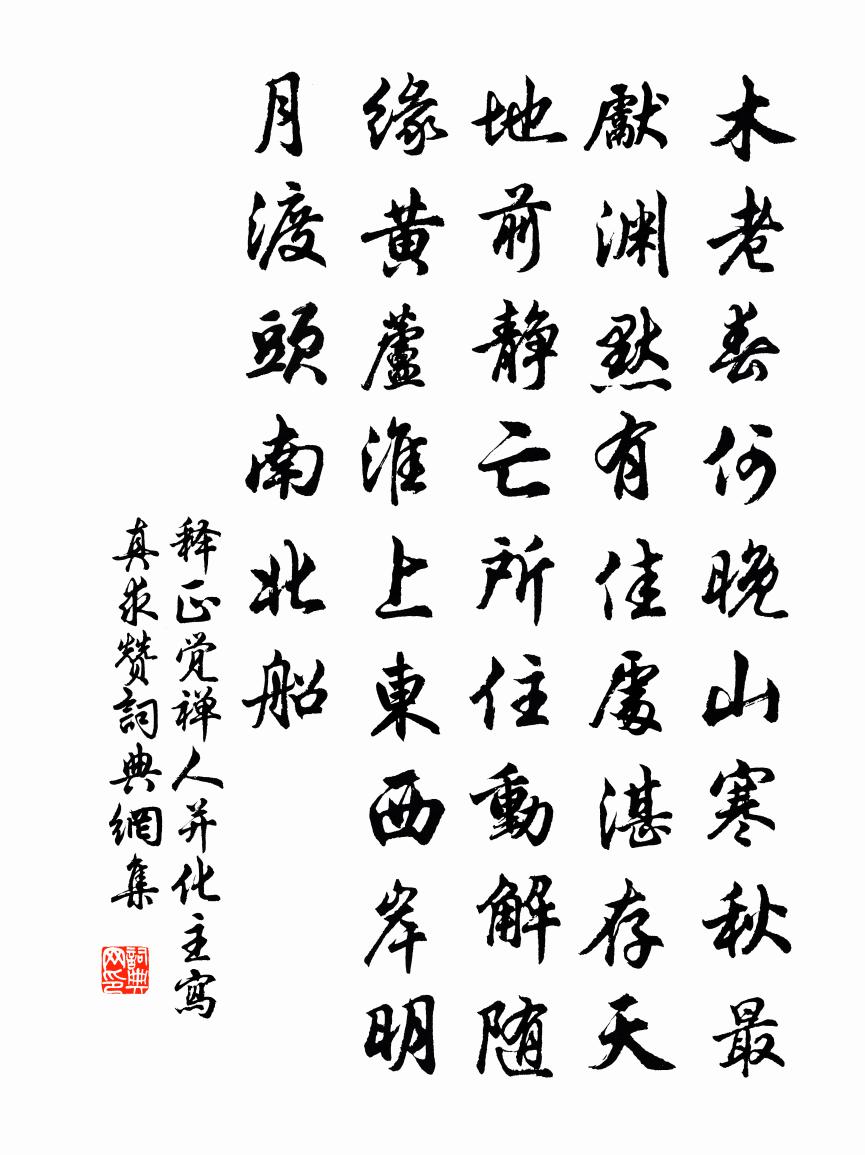 木老春何晚山寒秋最
獻渊默有佳處湛存天
地前静亡所住動解随
緣黄蘆淮上東西岸明
月渡頭南北船
释正觉禅人并化主寫
真求赞詞典網集
詞典网印